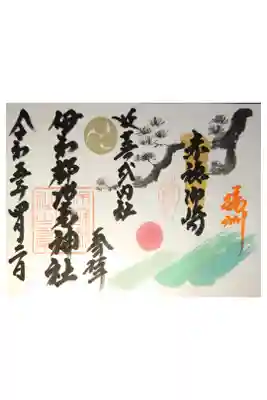 播州
赤穂御崎
延喜式内社
参拝
伊和都比売神社
令和五年四月二日